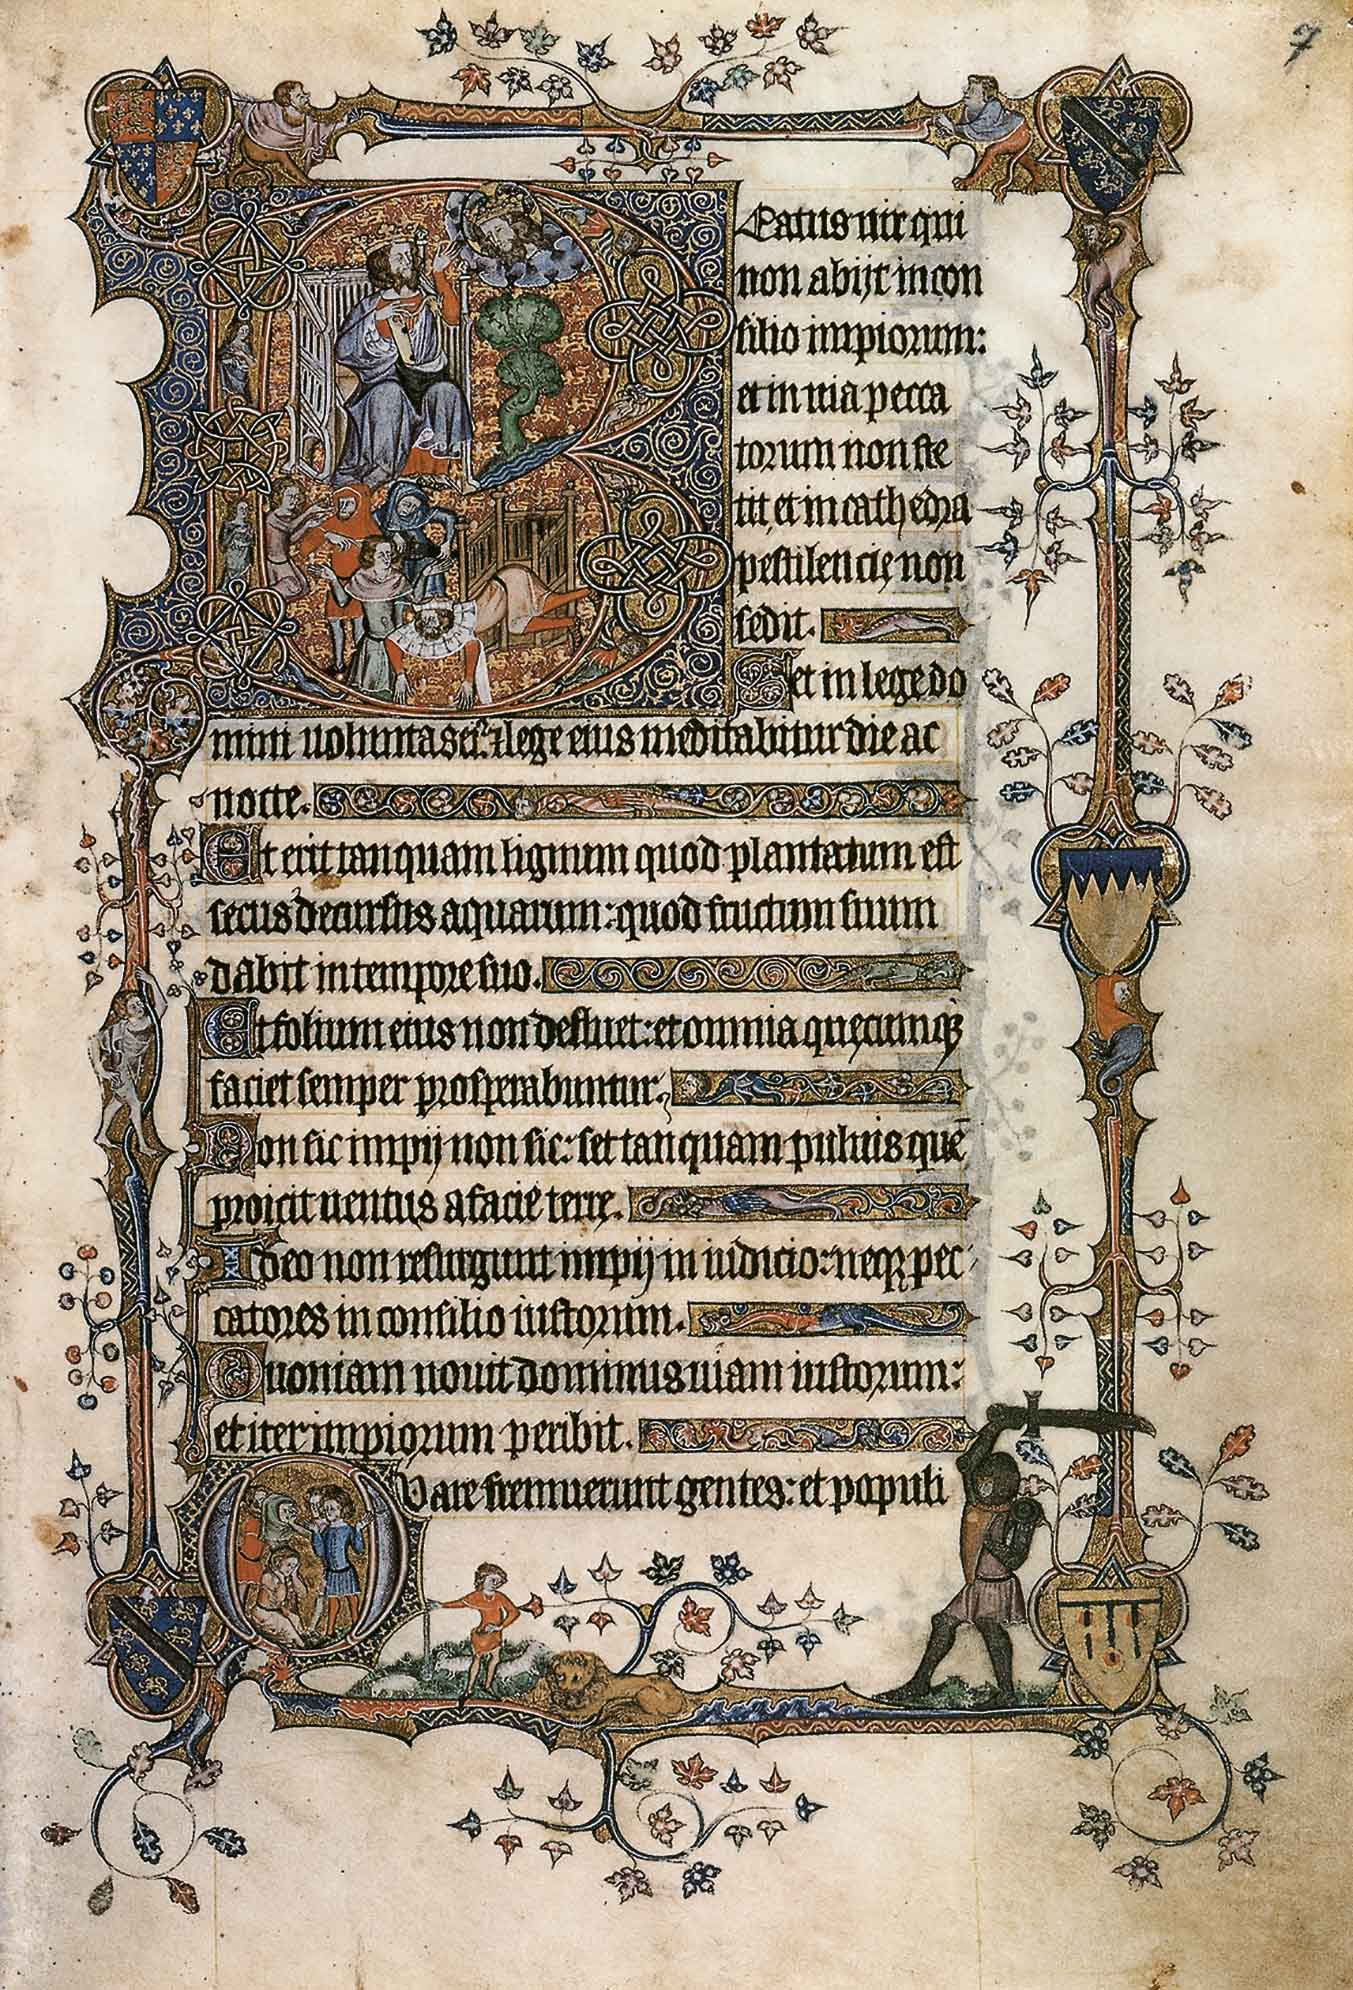 7
Beatus uir qui
non abijt in con
silio impiorum:
et in uia pecca
torum non ste
tit, et in cathedra
pestilencie non
sedit.
Set in lege do
mini uoluntas ei⁹: ⁊ lege eius meditabitur die ac
nocte.
Et erit tanquam lignum quod plantatum est
secus decursus aquarum: quod fructum suum
dabit in tempore suo.
Et folium eius non defluet: et omnia quęcumqꝫ
faciet semper prosperabuntur.
Non sic impij non sic: set tanquam puluis quē
proicit uentus a facie terrę.
Ideo non resurgunt impij in iudicio: neqꝫ pec
catores in consilio iustorum.
Quoniam nouit dominus uiam iustorum:
et iter impiorum peribit.
Quare fremuerunt gentes: et populi